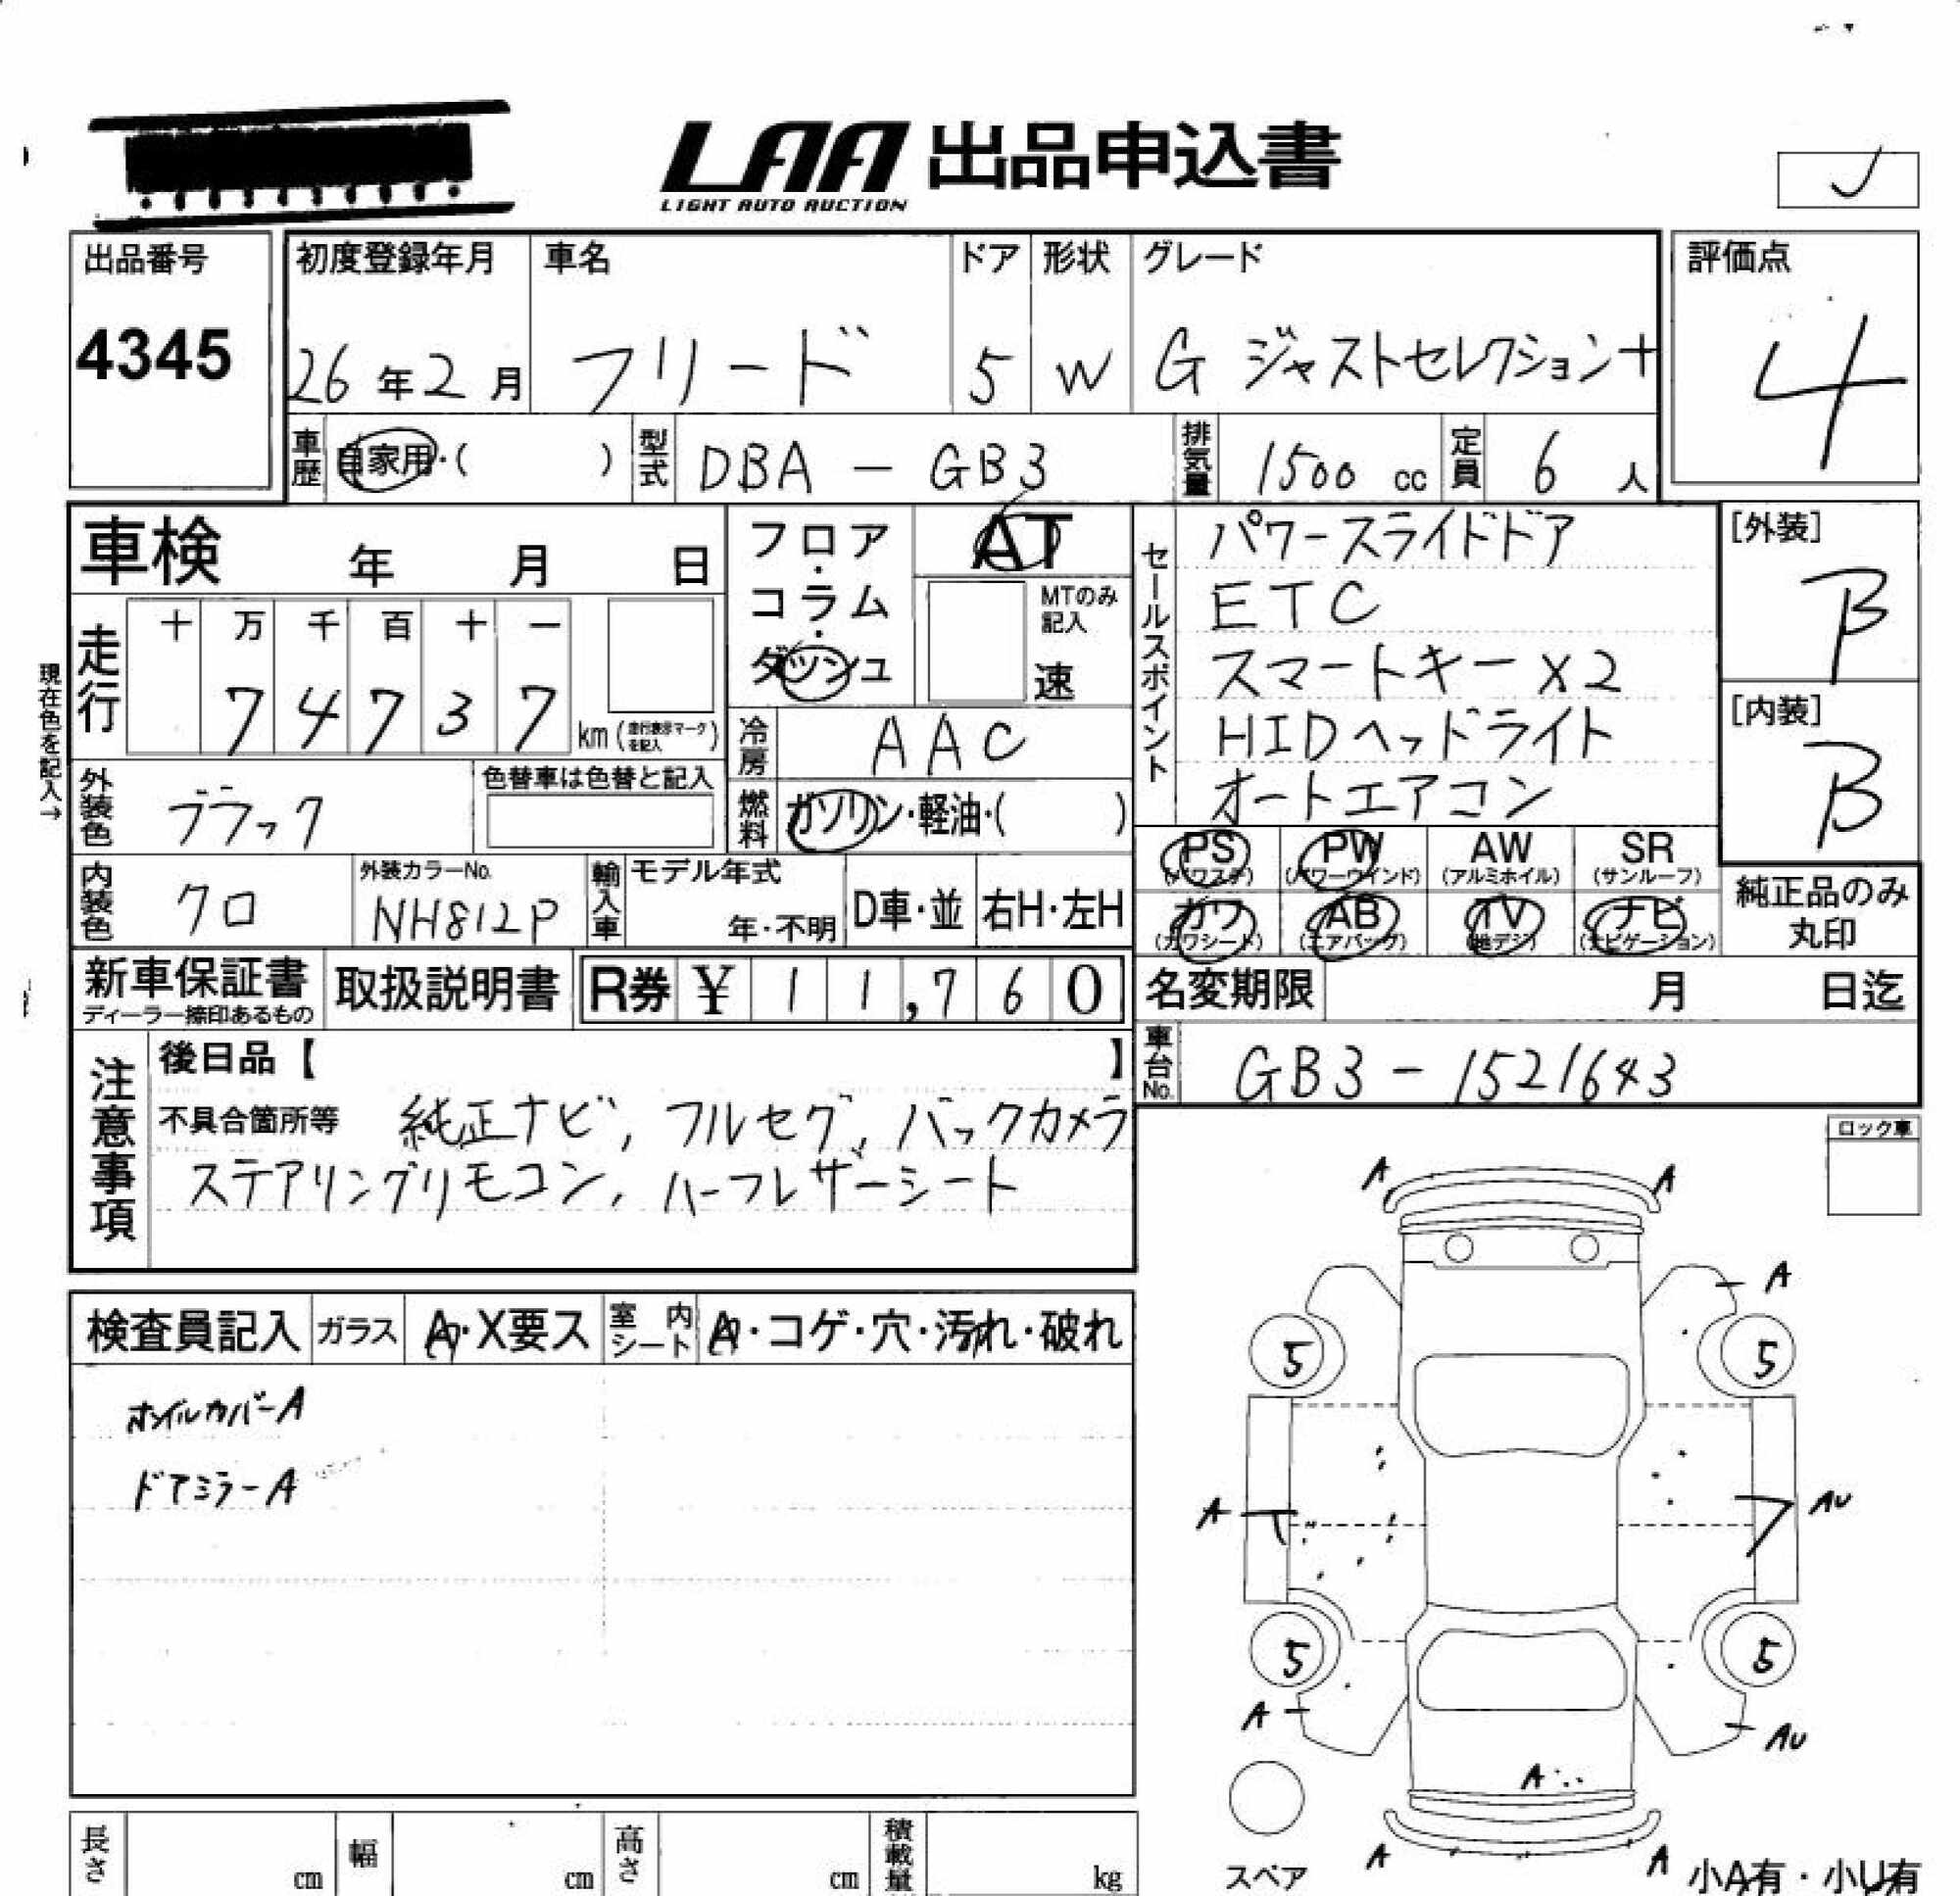 LAA 出品申込書
LIGHT AUTO AUCTION
出品番号
4345
初度登録年月
26年2月
車名
フリード
ドア
5
形状
W
グレード
G ジャストセレクション+
評価点
4
車歴 自家用・( )
型式 DBA-GB3
排気量 1500 cc
定員 6 人
車検 年 月 日
現在色を記入→
走行 十 万 千 百 十 一
7 4 7 3 7 km (走行表示マークを記入)
フロア・コラム・ダッシュ
AT
MTのみ記入
速
冷房 AAC
燃料 ガソリン・軽油・( )
外装色 ブラック
色替車は色替と記入
内装色 クロ
外装カラーNo.
NH812P
輸入車
モデル年式
年・不明
D車・並
右H・左H
セールスポイント
パワースライドドア
ETC
スマートキー X2
HIDヘッドライト
オートエアコン
[外装]
B
[内装]
B
PS (パワステ)
PW (パワーウインド)
AW (アルミホイル)
SR (サンルーフ)
カワ (カワシート)
AB (エアバック)
TV (地デジ)
ナビ (ナビゲーション)
純正品のみ
丸印
新車保証書
ディーラー捺印あるもの
取扱説明書
R券 ¥ 11,760
名変期限 月 日迄
車台No. GB3-1521643
注意事項
後日品【 】
不具合箇所等 純正ナビ, フルセグ, バックカメラ
ステアリングリモコン, ハーフレザーシート
ロック車
検査員記入 ガラス A・X要ス 室内シート A・コゲ・穴・汚れ・破れ
ホイルカバーA
ドアミラーA
A A
A
5 5
A AU
5 5
A AU
A
A A
スペア
小A有・小U有
長さ cm 幅 cm 高さ cm 積載量 kg